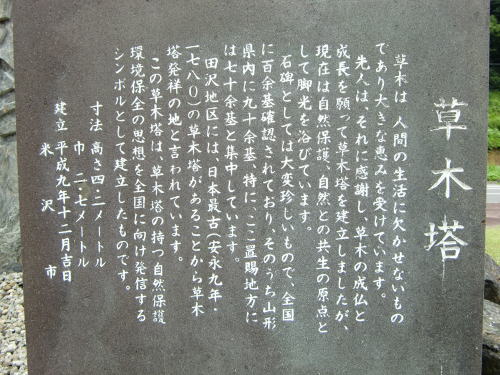 草木塔
草木は、人間の生活に欠かせないもの
であり大きな恵みを受けています。
先人は、それに感謝し、草木の成仏と
成長を願って草木塔を建立しましたが、
現在は自然保護、自然との共生の原点と
して脚光を浴びています。
石碑としては大変珍しいもので、全国
に百余基確認されており、そのうち山形
県内に九十余基、特に、ここ置賜地方に
は七十余基と集中しています。
田沢地区には、日本最古(安永九年・
一七八〇)の草木塔があることから草木
塔発祥の地と言われています。
この草木塔は、草木塔の持つ自然保護
環境保全の思想を全国に向け発信する
シンボルとして建立したものです。
寸法 高さ四・二メートル
巾 二・七メートル
建立 平成九年十二月吉日
米沢市